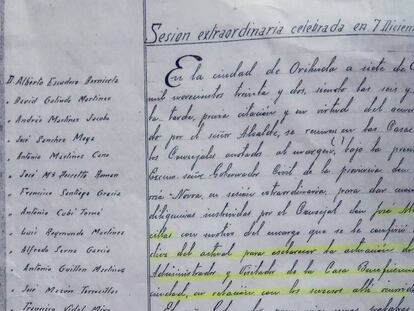 Sesion extraordinaria celebrada en 7 Diciem
D. Alberto Escudero Bernicola
" David Galindo Martinez
" Andrés Martinez
" José Sanchez Moya
" Antonio Martinez Cano
" José Mª Roman
" Francisco Santiago Gracia
" Antonio Cubí
" Luis Raymundo Martinez
" Alfredo Serna Garcia
" Antonio Guillen Martinez
" José Torrecillas
" Francisco Vidal
En la ciudad de Orihuela a siete de
mil novecientos treinta y dos, siendo las seis y
la tarde, previa citación y en virtud del
do por el señor Alcalde, se reunen en las Casa
los Concejales anotados al margen, bajo la
Excmo. señor Gobernador Civil de la provincia, don
en sesión extraordinaria, para dar
diligencias instruidas por el Concejal don José
cillas con motivo del encargo que se le confirió
del actual para esclarecer la actuación
Administrador y Visitador de la Casa Beneficencia
ciudad, en relación con los sucesos allí